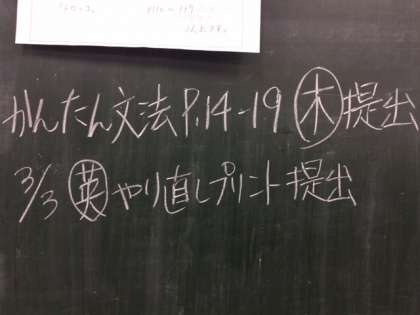 かんたん文法P.14-19 ㊍提出
3/3 ㊥やり直しプリント提出